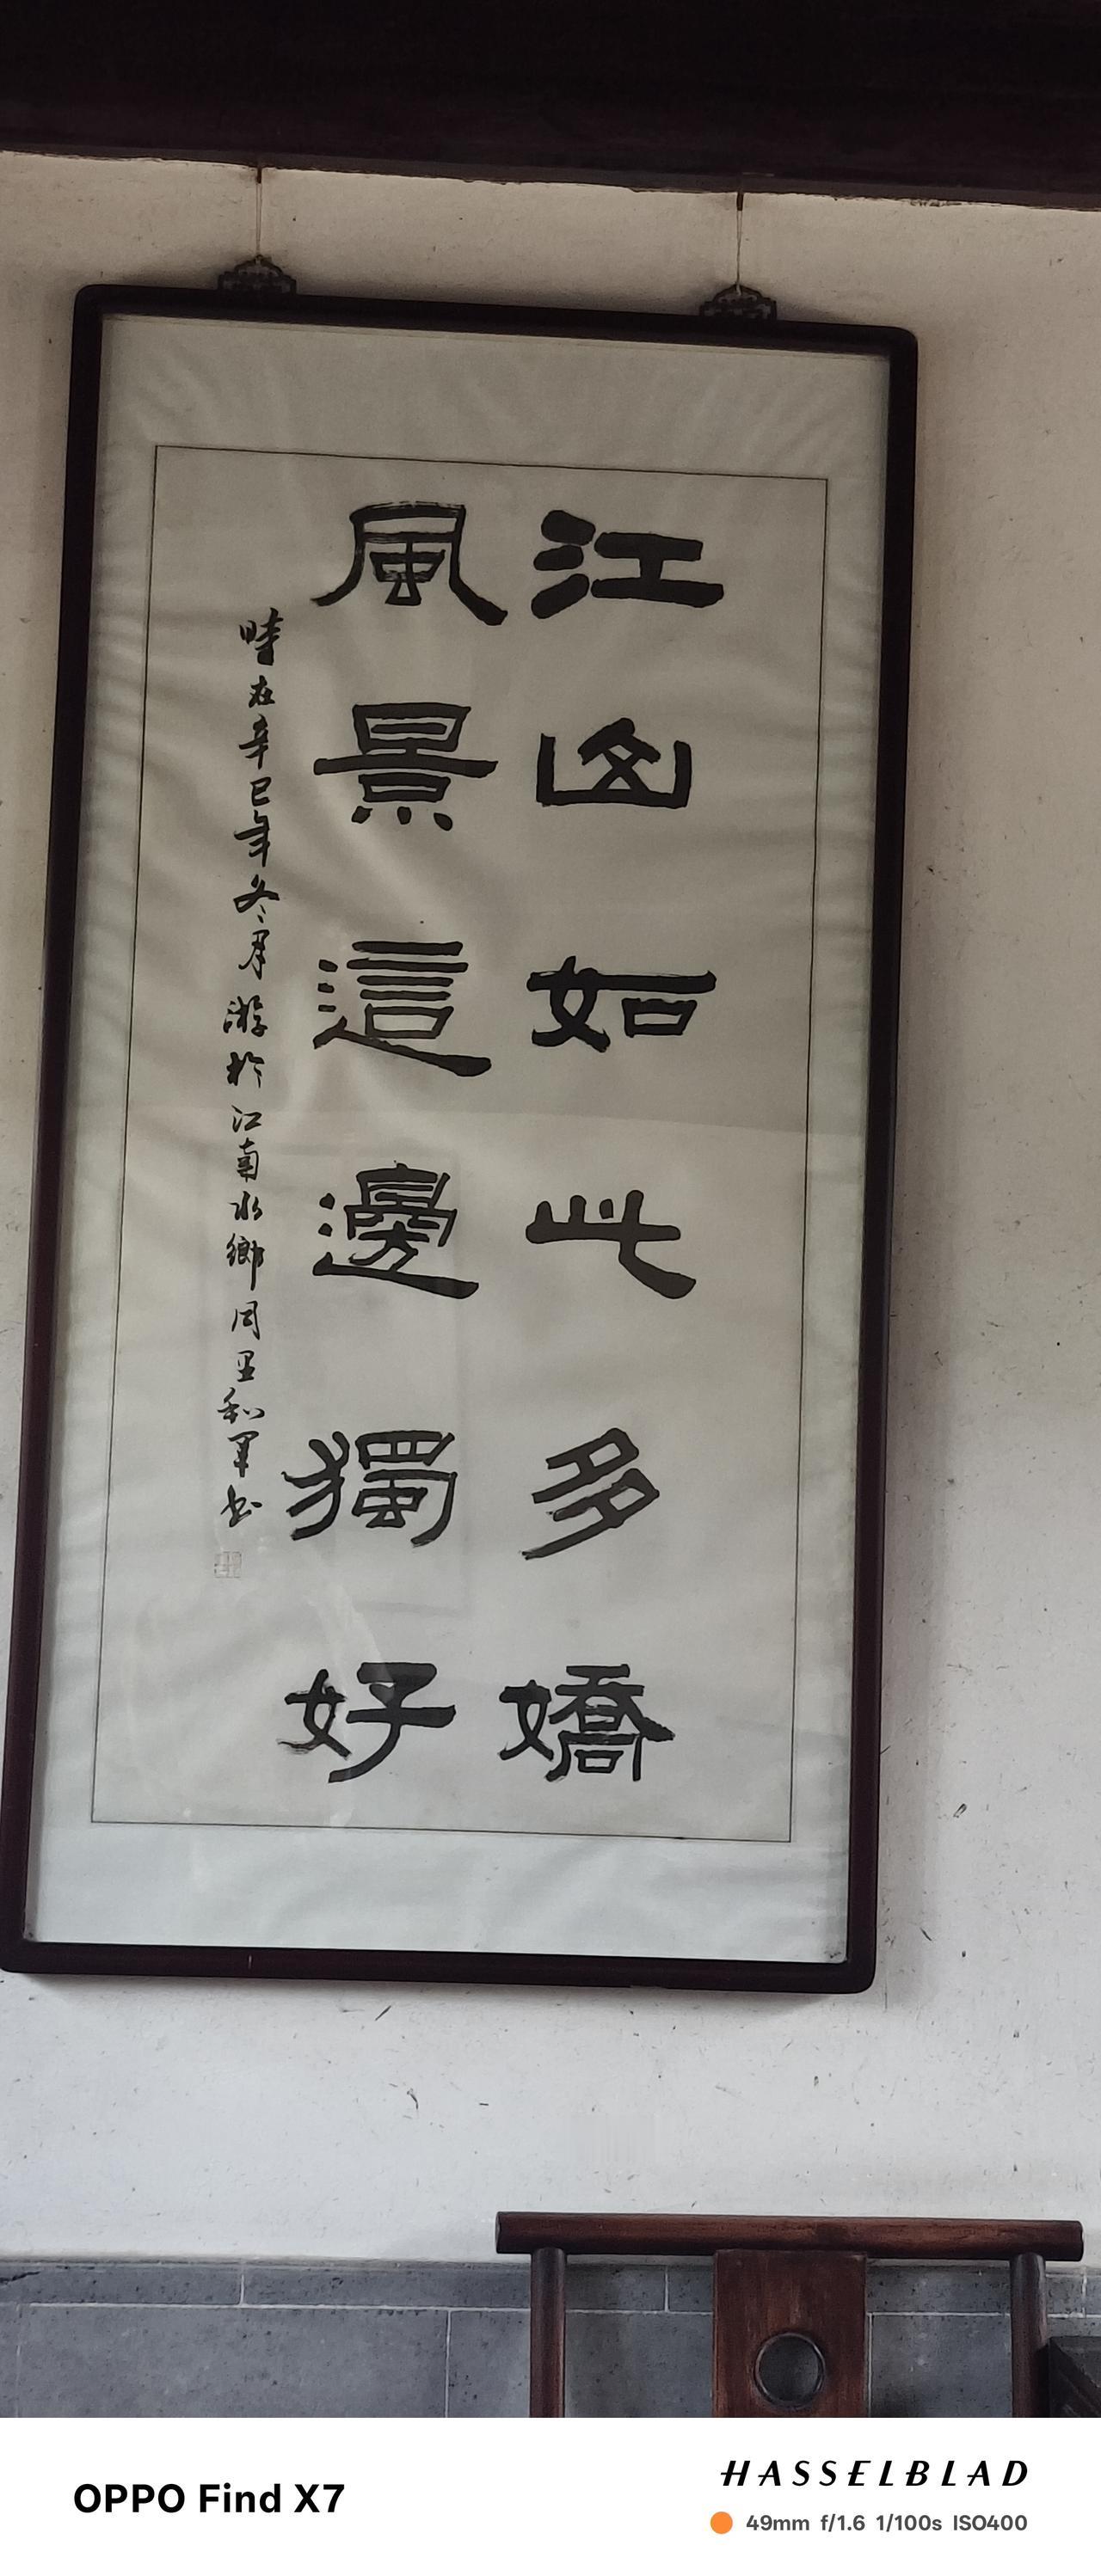 江山如此多嬌
風景這邊獨好
時在辛巳年冬月游於江南水鄉同里和軍书
OPPO Find X7
HASSELBLAD
49mm f/1.6 1/100s ISO400